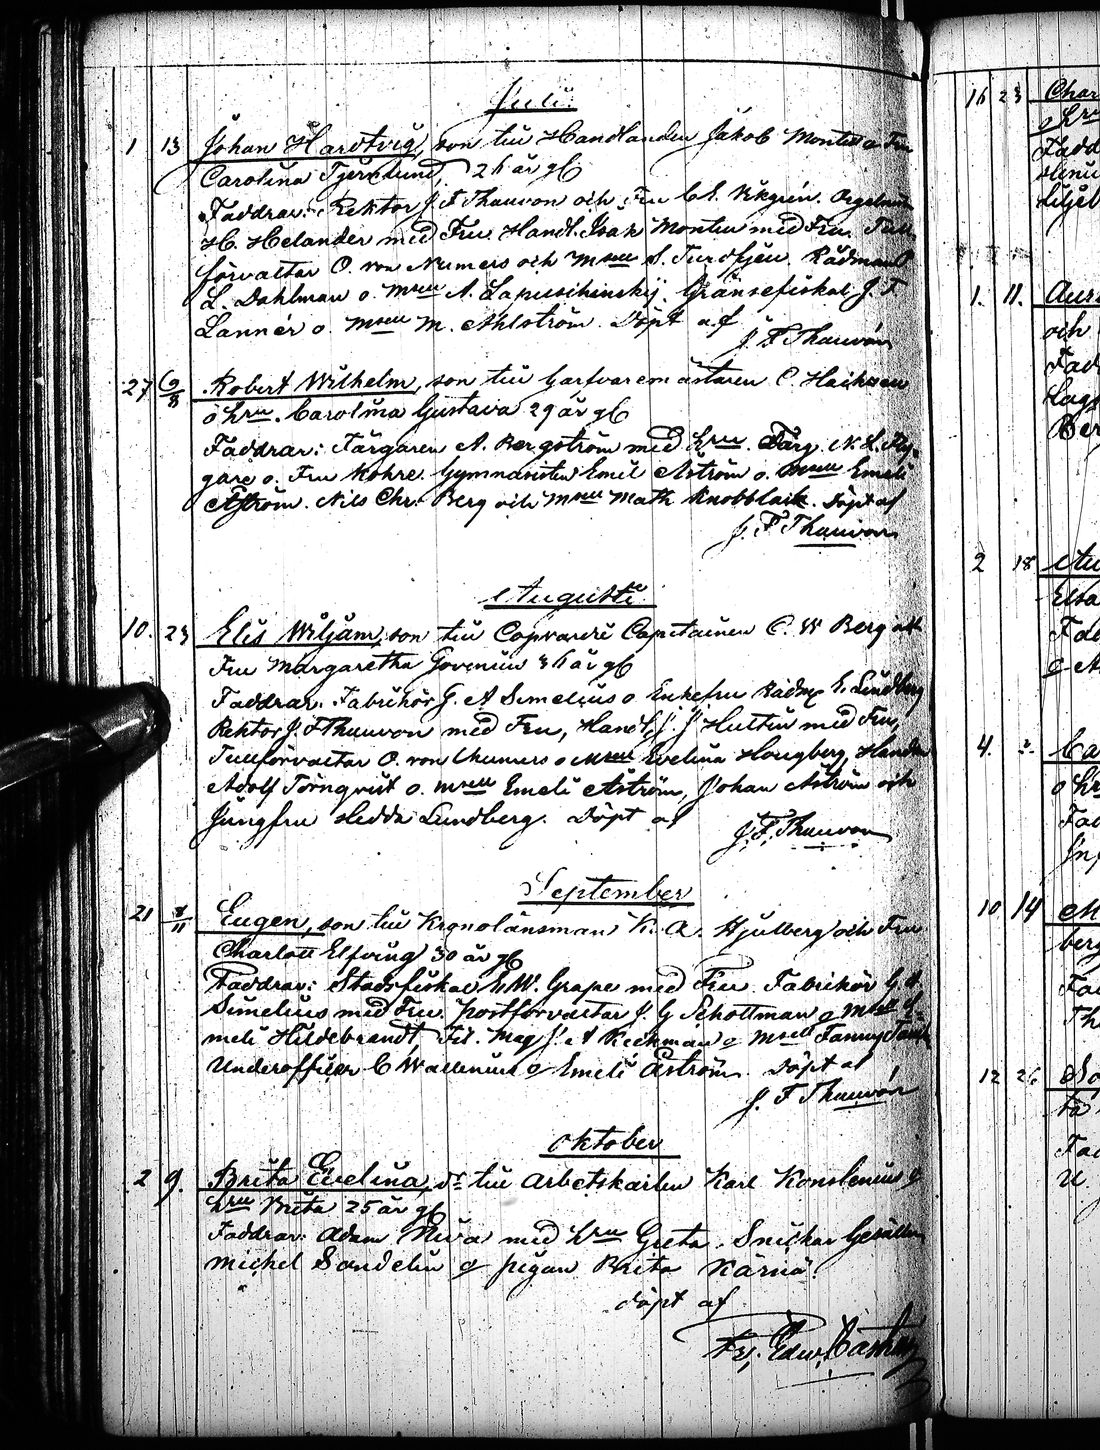 Juli.
1 13 Johan Hartvig, son till Handlanden Jakob Montell o Fru
Carolina Tjernlund, 26 år gl
Faddrar: Rektor J. F Thauvon och Fru C. E. Vikgrén. Orgelnist
H. Helander med Fru. Handl. Isak Montin med Fru. Tull-
förvaltar O. von Numers och Msell S. Turdfjeu. Rådman
L. Dahlman o. Msell A. Lapuschinskij. Gränsefiskal J. F
Lannér o. Msell M. Ahlström. Döpt af
J. F Thauvón
27 9/8 Robert Wilhelm, son till Garfvaremästaren C. Haihunen
o hru. Carolina Gustava 29 år gl
Faddrar: Färgaren A. Bergström med hru. Färg. N. L. Fly-
gare o. Fru Kohre. Gymnasisten Emil Aström o. Msell Emeli
Aström. Nils Chr. Berg och Msell Math Knobblock. Döpt af
J. F Thauvon
Augusti.
10. 23 Elis Wiljam, son till Copvardi Capitainen C. W Berg och
Fru Margaretha Govenius 36 år gl
Faddrar: Fabrikör G. A Simelius o Enkefru Rådm E. Lundberg
Rektor J. F Thauvon med Fru, Handl. J. J Hultin med Fru,
Tullförvaltar O. von Numers o Msell Evelina Hougberg, Handl
Adolf Törnqvist o. Msell Emeli Aström, Johan Aström och
Jungfru Hedda Lundberg. Döpt af
J. F. Thauvon
September
21 8/11 Eugen, son till Kronolänsman K. A. Hjulberg och Fru
Charlott Elfving 30 år gl
Faddrar: Stadsfiskal E. W. Grape med Fru. Fabrikör G. A
Simelius med Fru. Postförvaltar J. G Schottman o Msell E-
meli Hildebrandt, Fil. Mag J. A Keckman o Msell Fanny
Underofficer C Wallenius o Emeli Åström. Döpt af
J. F Thauvón
Oktober
2 9. Brita Evelina, dr till Arbetskarlen Karl Konstenius o
hru Brita 25 år gl
Faddrar: Adam Niva med hru Greta. Snickar Gesällen
Michel Sandelin o pigan Brita Kärnä.
döpt af
Fr. Edw. Castrén
16 23 Char
hru
Fadd
1. 11. Aur
och
Fad
Lag
Ber
2 18
Elsa
Fad
o A
4. Ca
o hr
Fad
10 14
berg
Fad
Th
12 26
Fad
u